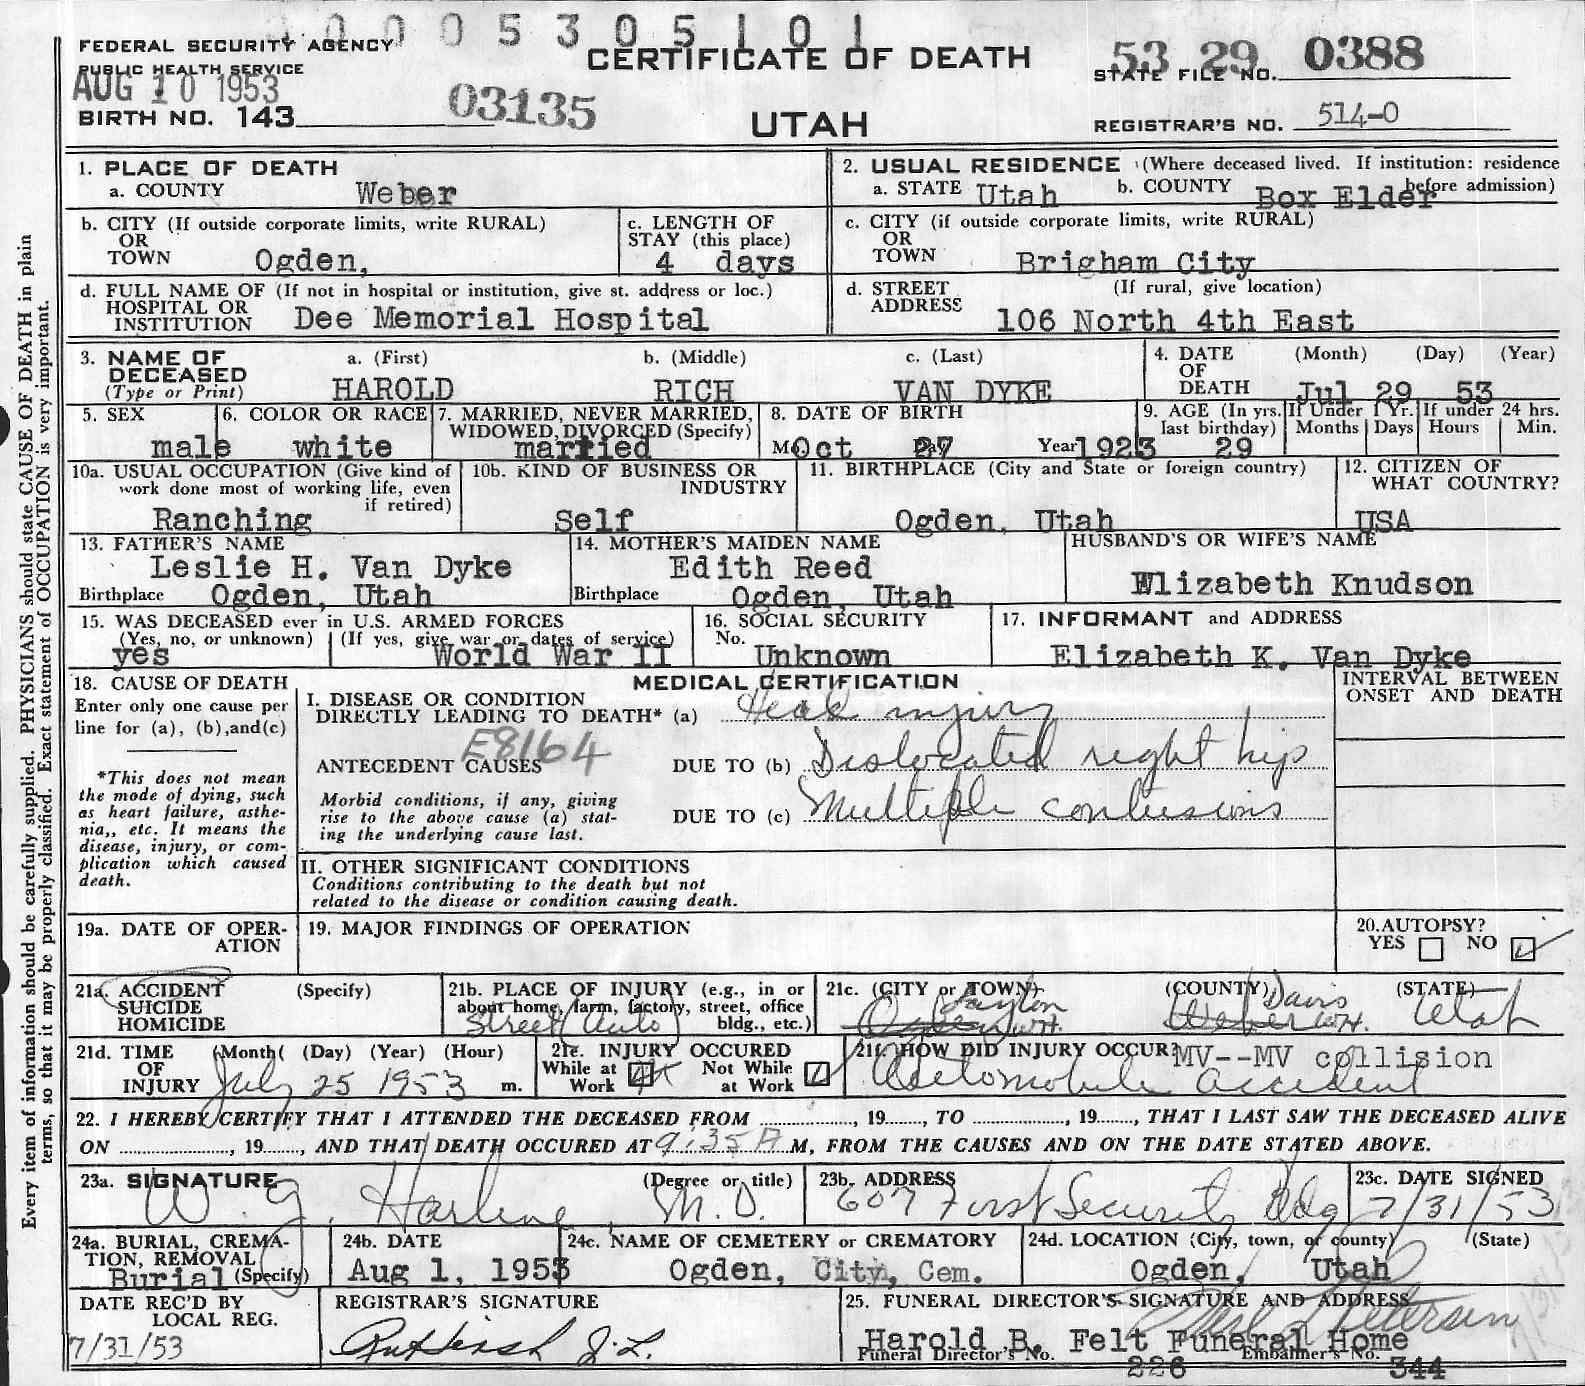 0005305101
FEDERAL SECURITY AGENCY
PUBLIC HEALTH SERVICE
AUG 10 1953
BIRTH NO. 143
03135
CERTIFICATE OF DEATH
UTAH
53 29 0388
STATE FILE NO.
REGISTRAR'S NO. 514-0
Every item of information should be carefully supplied. PHYSICIANS should state CAUSE OF DEATH in plain
terms, so that it may be properly classified. Exact statement of OCCUPATION is very important.
1. PLACE OF DEATH
a. COUNTY Weber
2. USUAL RESIDENCE (Where deceased lived. If institution: residence
before admission)
a. STATE Utah b. COUNTY Box Elder
b. CITY (If outside corporate limits, write RURAL)
OR
TOWN Ogden,
c. LENGTH OF
STAY (this place)
4 days
c. CITY (if outside corporate limits, write RURAL)
OR
TOWN Brigham City
d. FULL NAME OF (If not in hospital or institution, give st. address or loc.)
HOSPITAL OR
INSTITUTION Dee Memorial Hospital
d. STREET (If rural, give location)
ADDRESS
106 North 4th East
3. NAME OF a. (First) b. (Middle) c. (Last)
DECEASED
(Type or Print) HAROLD RICH VAN DYKE
4. DATE (Month) (Day) (Year)
OF
DEATH Jul 29 53
5. SEX
male
6. COLOR OR RACE
white
7. MARRIED, NEVER MARRIED,
WIDOWED, DIVORCED (Specify)
married
8. DATE OF BIRTH
Oct 27 Year 1923
9. AGE (In yrs.
last birthday)
29
If Under 1 Yr.
Months Days
If under 24 hrs.
Hours Min.
10a. USUAL OCCUPATION (Give kind of
work done most of working life, even
if retired)
Ranching
10b. KIND OF BUSINESS OR
INDUSTRY
Self
11. BIRTHPLACE (City and State or foreign country)
Ogden, Utah
12. CITIZEN OF
WHAT COUNTRY?
USA
13. FATHER'S NAME
Leslie H. Van Dyke
Birthplace Ogden, Utah
14. MOTHER'S MAIDEN NAME
Edith Reed
Birthplace Ogden, Utah
HUSBAND'S OR WIFE'S NAME
Elizabeth Knudson
15. WAS DECEASED ever in U.S. ARMED FORCES
(Yes, no, or unknown) (If yes, give war or dates of service)
yes World War II
16. SOCIAL SECURITY
No.
Unknown
17. INFORMANT and ADDRESS
Elizabeth K. Van Dyke
18. CAUSE OF DEATH
Enter only one cause per
line for (a), (b), and (c)
*This does not mean
the mode of dying, such
as heart failure, asthe-
nia,, etc. It means the
disease, injury, or com-
plication which caused
death.
MEDICAL CERTIFICATION
INTERVAL BETWEEN
ONSET AND DEATH
I. DISEASE OR CONDITION
DIRECTLY LEADING TO DEATH* (a) Head injury
E8164
ANTECEDENT CAUSES DUE TO (b) Dislocated right hip
Morbid conditions, if any, giving
rise to the above cause (a) stat-
ing the underlying cause last.
DUE TO (c) Multiple contusions
II. OTHER SIGNIFICANT CONDITIONS
Conditions contributing to the death but not
related to the disease or condition causing death.
19a. DATE OF OPER-
ATION
19. MAJOR FINDINGS OF OPERATION
20. AUTOPSY?
YES NO
21a. ACCIDENT (Specify)
SUICIDE
HOMICIDE
21b. PLACE OF INJURY (e.g., in or
about home, farm, factory, street, office
bldg., etc.)
Street (Auto)
21c. (CITY or TOWN) (COUNTY) (STATE)
Layton Davis
Ogden W.H. Weber W.H. Utah
21d. TIME (Month) (Day) (Year) (Hour)
OF
INJURY July 25 1953 m.
21e. INJURY OCCURED
While at Work Not While at Work
21f. HOW DID INJURY OCCUR? MV--MV collision
Automobile accident
22. I HEREBY CERTIFY THAT I ATTENDED THE DECEASED FROM ............, 19......., TO ............, 19......., THAT I LAST SAW THE DECEASED ALIVE
ON ............, 19......., AND THAT DEATH OCCURED AT 9:35 A M., FROM THE CAUSES AND ON THE DATE STATED ABOVE.
23a. SIGNATURE (Degree or title)
W. J. Harline, M.D.
23b. ADDRESS
607 First Security Bldg
23c. DATE SIGNED
7/31/53
24a. BURIAL, CREMA-
TION, REMOVAL
Burial (Specify)
24b. DATE
Aug 1, 1953
24c. NAME OF CEMETERY or CREMATORY
Ogden, City, Cem.
24d. LOCATION (City, town, or county) (State)
Ogden, Utah
DATE REC'D BY
LOCAL REG.
7/31/53
REGISTRAR'S SIGNATURE
J.L.
25. FUNERAL DIRECTOR'S SIGNATURE AND ADDRESS
Petersen
Harold B. Felt Funeral Home
Funeral Director's No. 226 Embalmer's No. 344